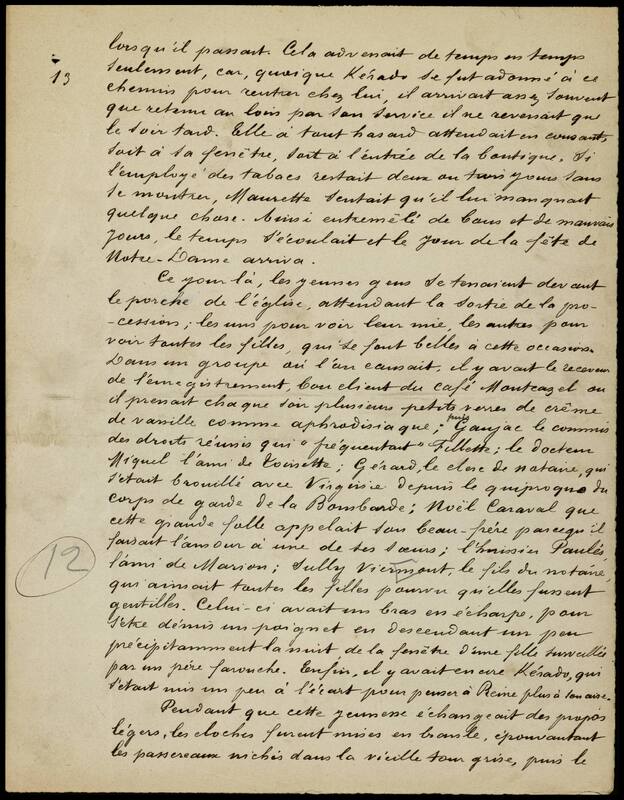 13
lorsqu'il passait. Cela advenait de temps en temps
seulement, car, quoique Kérado se fut adonné à ce
chemin pour rentrer chez lui, il arrivait assez souvent
que retenu au loin par son service il ne revenait que
le soir tard. Elle à tout hasard attendait en cousant
soit à sa fenêtre, soit à l'entrée de la boutique. Si
l'employé des tabacs restait deux ou trois jours sans
se montrer, Maurette sentait qu'il lui manquait
quelque chose. Ainsi entremêlé de bons et de mauvais
jours, le temps s'écoulait et le jour de la fête de
Notre-Dame arriva.
Ce jour là, les jeunes gens se tenaient devant
le porche de l'église, attendant la sortie de la pro-
-cession; les uns pour voir leur mie, les autres pour
voir toutes les filles, qui se font belles à cette occasion.
Dans un groupe où l'on causait, il y avait le receveur
de l'enregistrement, bon client du café Montcazel où
il prenait chaque soir plusieurs petits verres de crême
de vanille comme aphrodisiaque; puis Gaujac le commis
des droits réunis qui "fréquentait" Fillette; le docteur
Miquel l'ami de Toinette; Gérard, le clerc de notaire, qui
s'était brouillé avec Virginie depuis le quiproquo du
corps de garde de la Bombarde; Noël Caraval que
cette grande folle appelait son beau-frère parcequ'il
faisait l'amour à une de ses sœurs; l'huissier Paulès,
l'ami de Marion; Sully Viermont, le fils du notaire,
qui aimait toutes les filles pourvu qu'elles fussent
gentilles. Celui-ci avait un bras en écharpe, pour
s'être démis un poignet en descendant un peu
précipitamment la nuit de la fenêtre d'une fille surveillée
par un père farouche. Enfin, il y avait encore Kérado, qui
s'était mis un peu à l'écart pour penser à Reine plus à son aise.
Pendant que cette jeunesse échangeait des propos
légers, les cloches furent mises en branle, épouvantant
les passereaux nichés dans la vieille tour grise, puis le
12